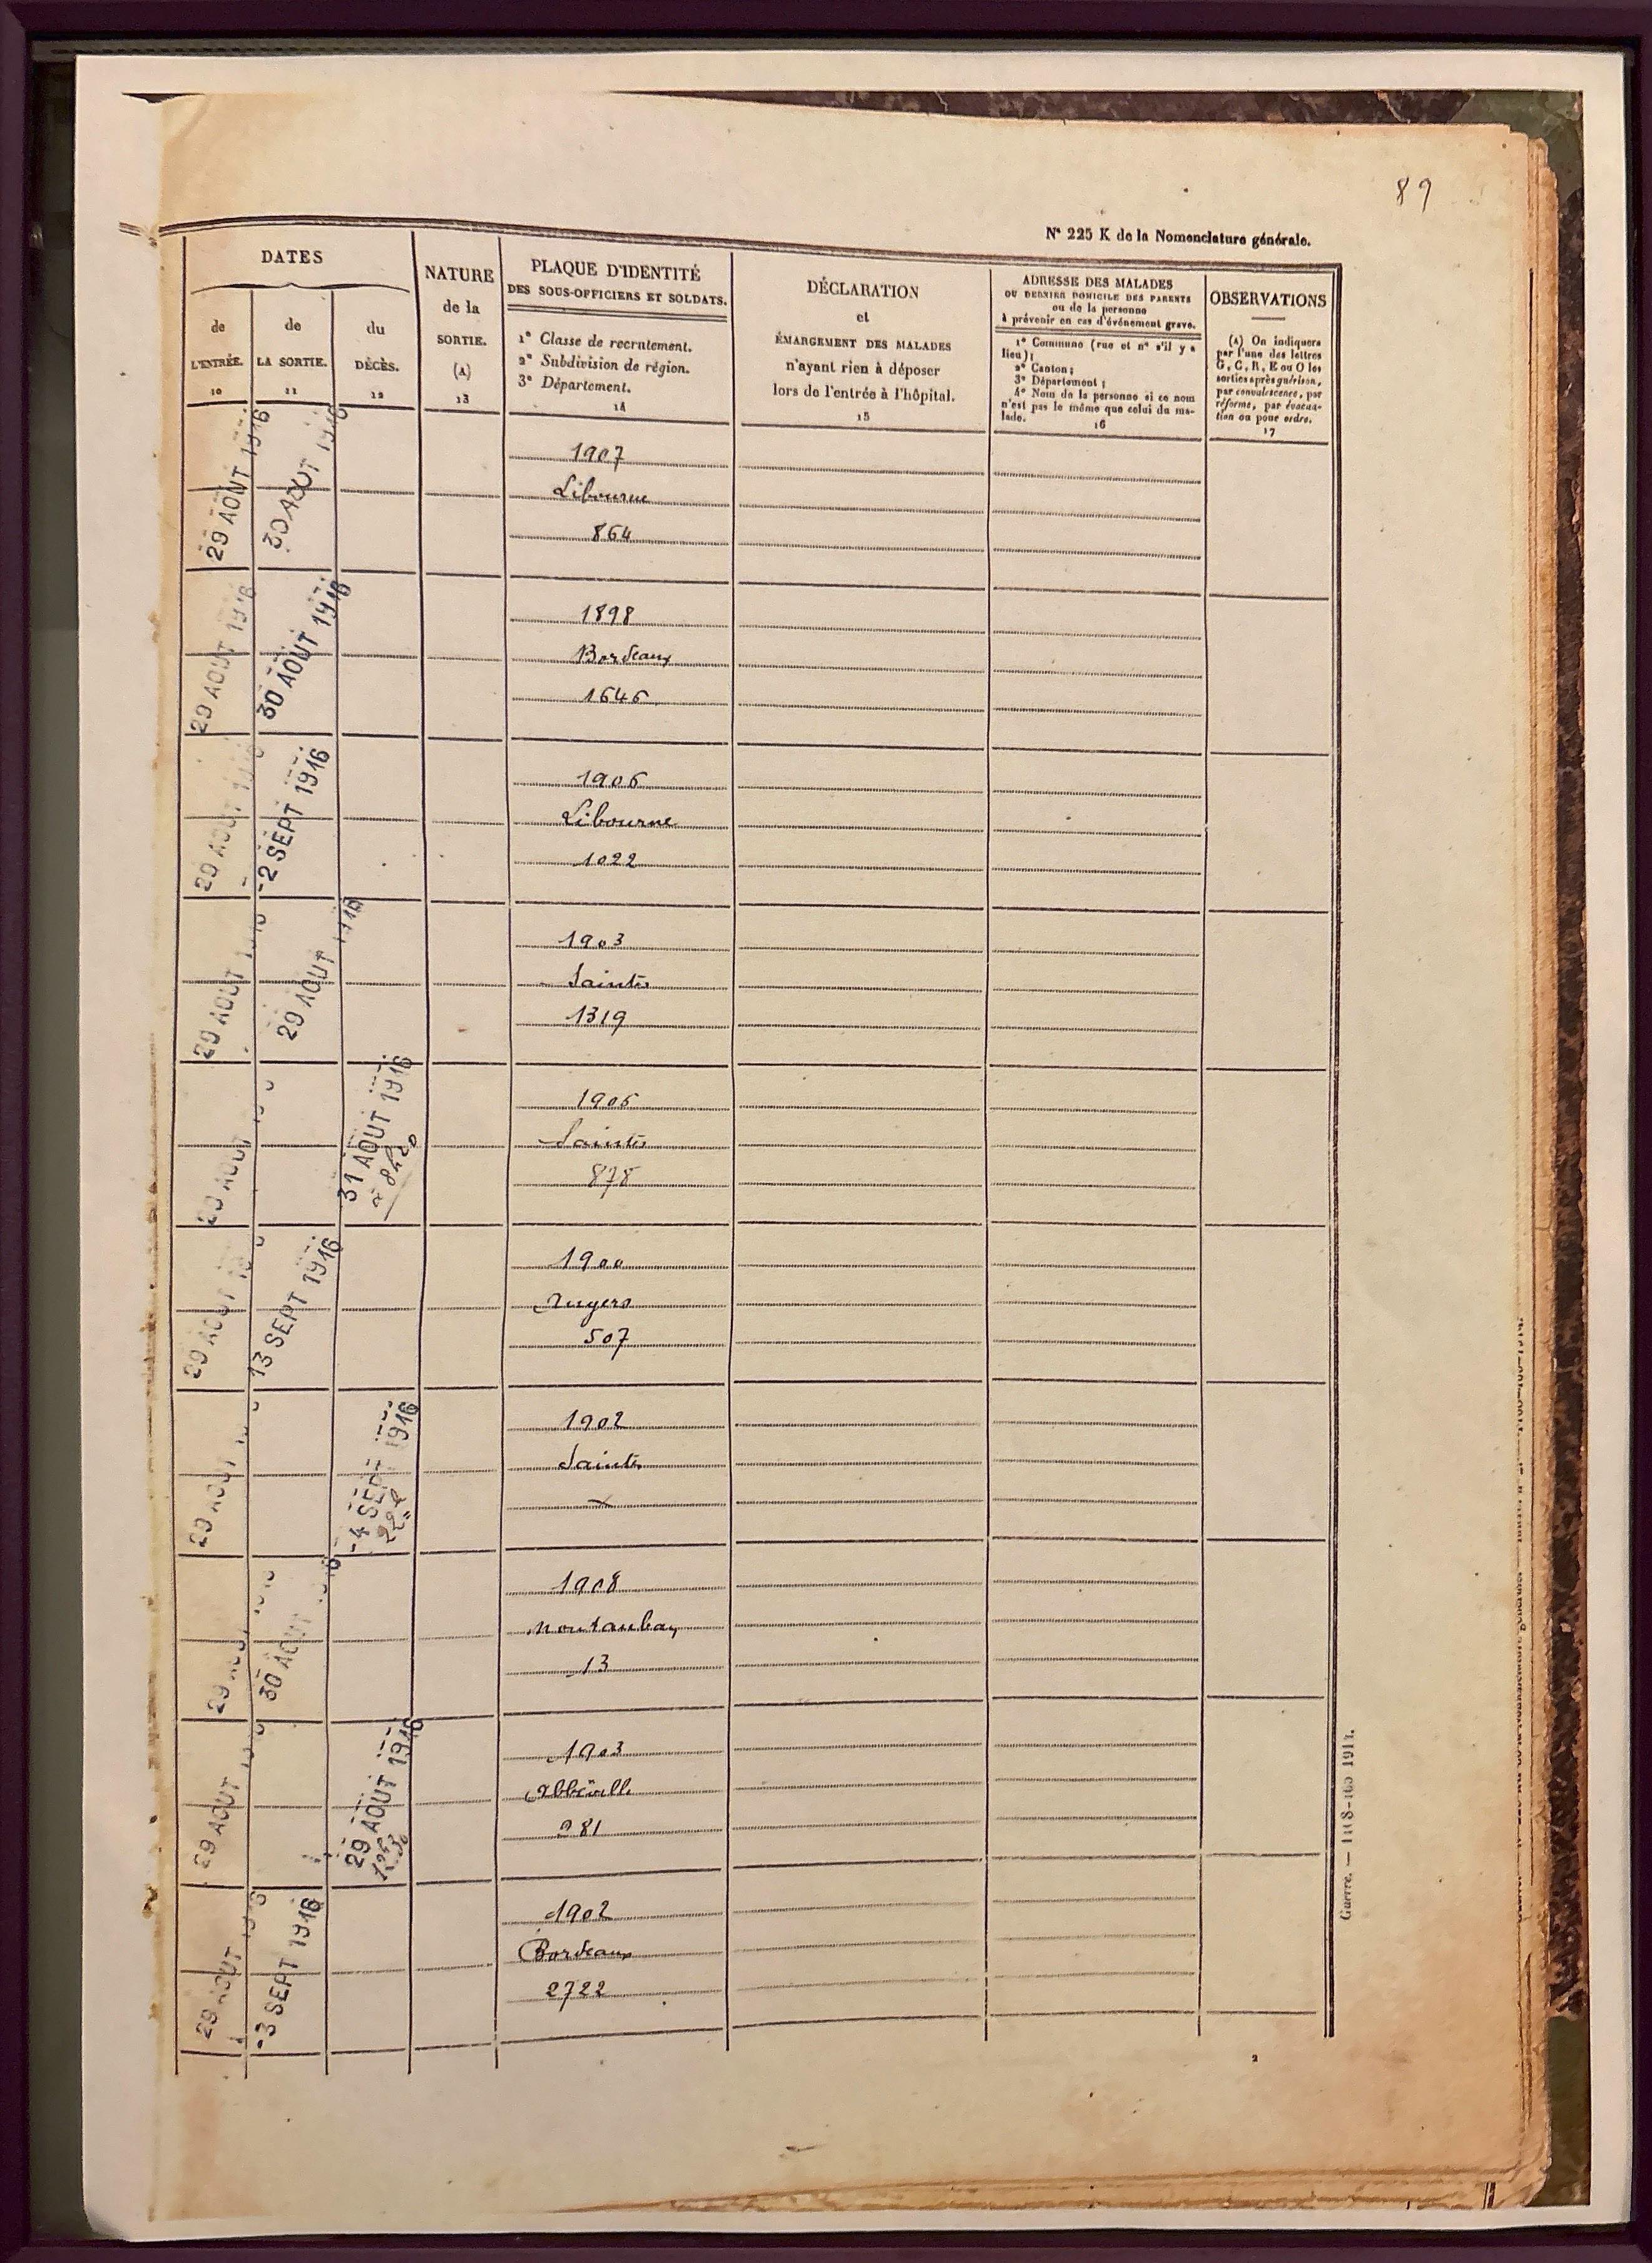 89
N° 225 K de la Nomenclature générale.
DATES
de L'ENTRÉE. 10
de LA SORTIE. 11
du DÉCÈS. 12
NATURE
de la
SORTIE.
(A)
13
PLAQUE D'IDENTITÉ
DES SOUS-OFFICIERS ET SOLDATS.
1° Classe de recrutement.
2° Subdivision de région.
3° Département.
14
DÉCLARATION
et
ÉMARGEMENT DES MALADES
n'ayant rien à déposer
lors de l'entrée à l'hôpital.
15
ADRESSE DES MALADES
OU DERNIER DOMICILE DES PARENTS
ou de la personne
à prévenir en cas d'événement grave.
1° Commune (rue et n° s'il y a
lieu);
2° Canton;
3° Département;
4° Nom de la personne si ce nom
n'est pas le même que celui du ma-
lade.
16
OBSERVATIONS
(A) On indiquera
par l'une des lettres
G, C, R, E ou O les
sorties après guérison,
par convalescence, par
réforme, par évacua-
tion ou pour ordre.
17
29 AOUT 1916
30 AOUT 1916
1907
Libourne
864
29 AOUT 1916
30 AOUT 1916
1898
Bordeaux
1646
29 AOUT 1916
-2 SEPT 1916
1906
Libourne
1022
29 AOUT 1916
29 AOUT 1916
1903
Saintes
1319
29 AOUT
31 AOUT 1916
1906
Saintes
878
29 AOUT
13 SEPT 1916
1900
Angers
507
29 AOUT
-4 SEPT 1916
1902
Saintes
29 AOUT
30 AOUT
1908
Montauban
13
29 AOUT
29 AOUT 1916
1903
Abbeville
281
29 AOUT
-3 SEPT 1916
1902
Bordeaux
2722
2
Guerre.